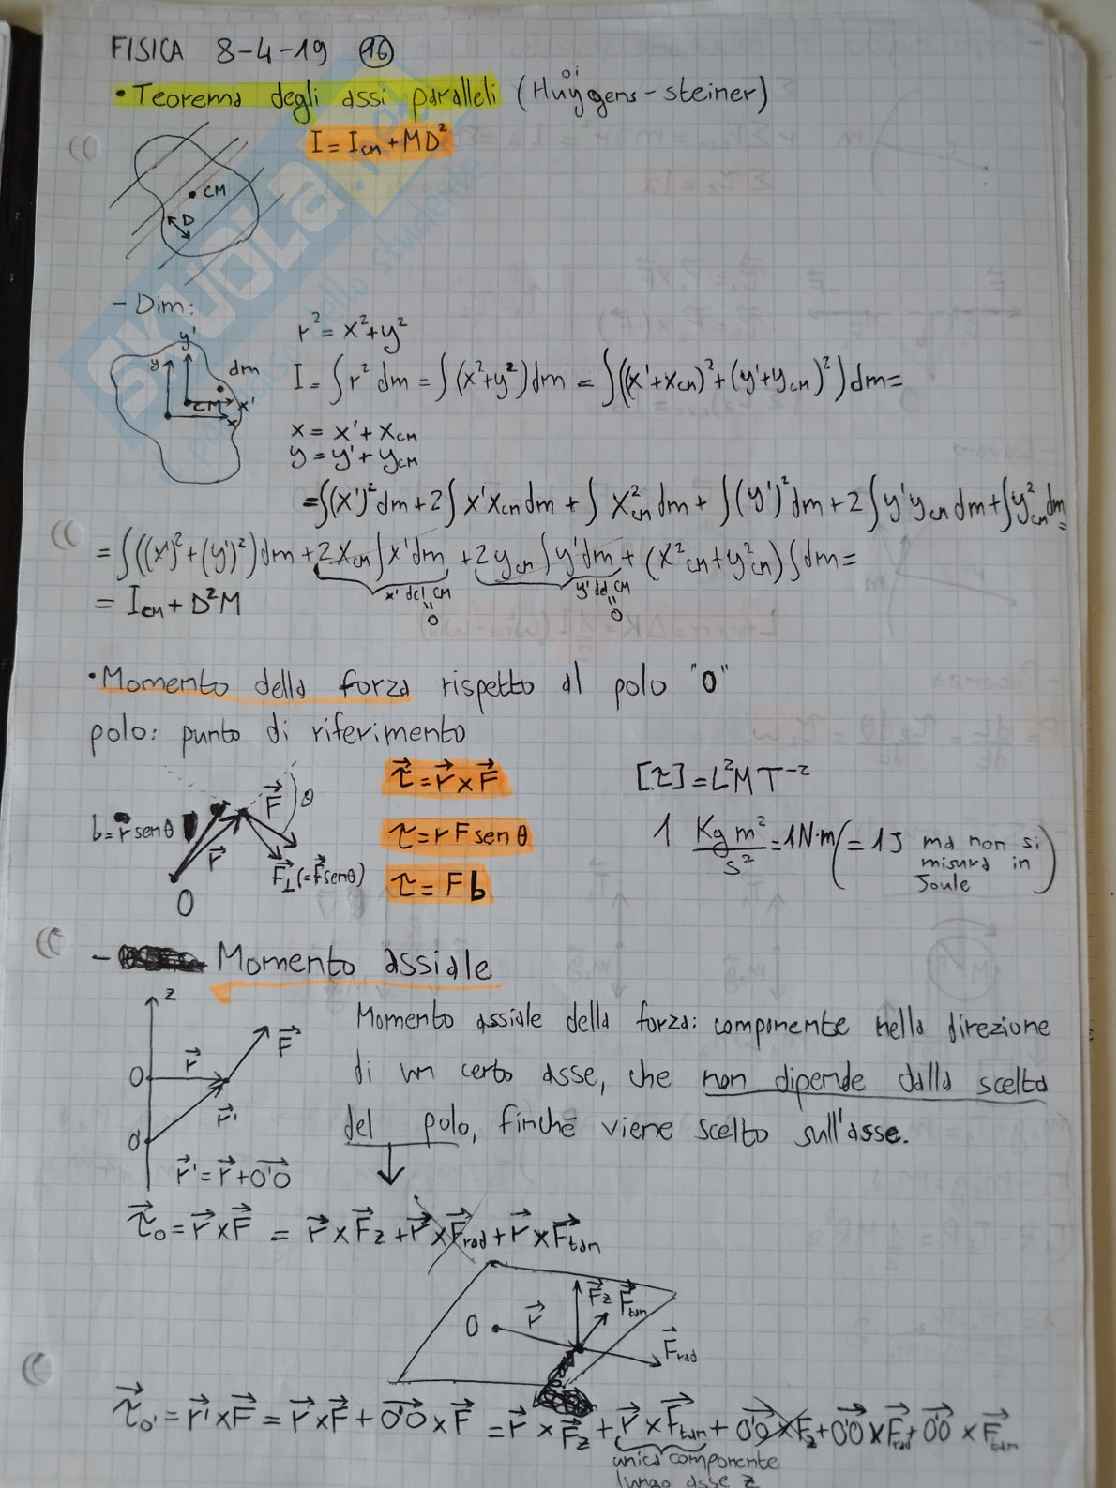 FISICA 8-4-19 16
• Teorema degli assi paralleli (Huygens-steiner)
oi
I = I_CM + MD²
CM
D
- Dim:
r² = x² + y²
y'
y
dm
CM
x'
x
I = ∫r² dm = ∫(x²+y²)dm = ∫((x'+x_CM)²+(y'+y_CM)²)dm =
x = x' + x_CM
y = y' + y_CM
= ∫(x')²dm + 2∫x'x_CM dm + ∫x²_CM dm + ∫(y')²dm + 2∫y'y_CM dm + ∫y²_CM dm =
= ∫((x')²+(y')²)dm + 2x_CM∫x'dm + 2y_CM∫y'dm + (x²_CM+y²_CM)∫dm =
x' del CM
y' del CM
=
0
=
0
= I_CM + D²M
• Momento della forza rispetto al polo "O"
polo: punto di riferimento
τ⃗ = r⃗ × F⃗
[τ] = L²MT⁻²
F⃗
θ
b = r senθ
r⃗
F⃗⊥(=F⃗senθ)
O
τ = r F sen θ
1 Kg m²/s² = 1N·m (= 1J ma non si
misura in
Joule)
τ = F b
- Momento assiale
z
F⃗
r⃗
O
r⃗'
O'
r⃗' = r⃗ + O'O⃗
Momento assiale della forza: componente nella direzione
di un certo asse, che non dipende dalla scelta
del polo, finché viene scelto sull'asse.
τ⃗_O = r⃗ × F⃗ = r⃗ × F⃗_z + r⃗ × F⃗_rad + r⃗ × F⃗_tan
O
r⃗
F⃗_z
F⃗_tan
F⃗_rad
τ⃗_O' = r⃗' × F⃗ = r⃗ × F⃗ + O'O⃗ × F⃗ = r⃗ × F⃗_z + r⃗ × F⃗_tan + O'O⃗ × F_z + O'O⃗ × F⃗_rad + O'O⃗ × F⃗_tan
unica componente
lungo asse z
SKUOLA